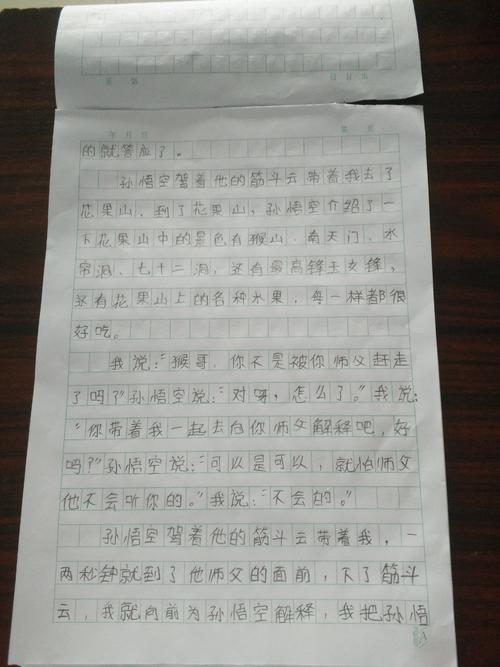 年 月 日 第 页
的就答应了。
孙悟空驾着他的筋斗云带着我去了
花果山，到了花果山，孙悟空介绍了一
下花果山中的景色有猴山、南天门、水
帘洞、七十二洞，还有最高锋王女锋，
还有花果山上的各种水果，每一样都很
好吃。
我说：“猴哥，你不是被你师父赶走
了吗？”孙悟空说：“对呀，怎么了。”我说：
“你带着我一起去向你师父解释吧，好
吗？”孙悟空说：“可以是可以，就怕师父
他不会听你的。”我说：“不会的。”
孙悟空驾着他的筋斗云带着我，一
两秒钟就到了他师父的面前，下了筋斗
云，我就向前为孙悟空解释，我把孙悟